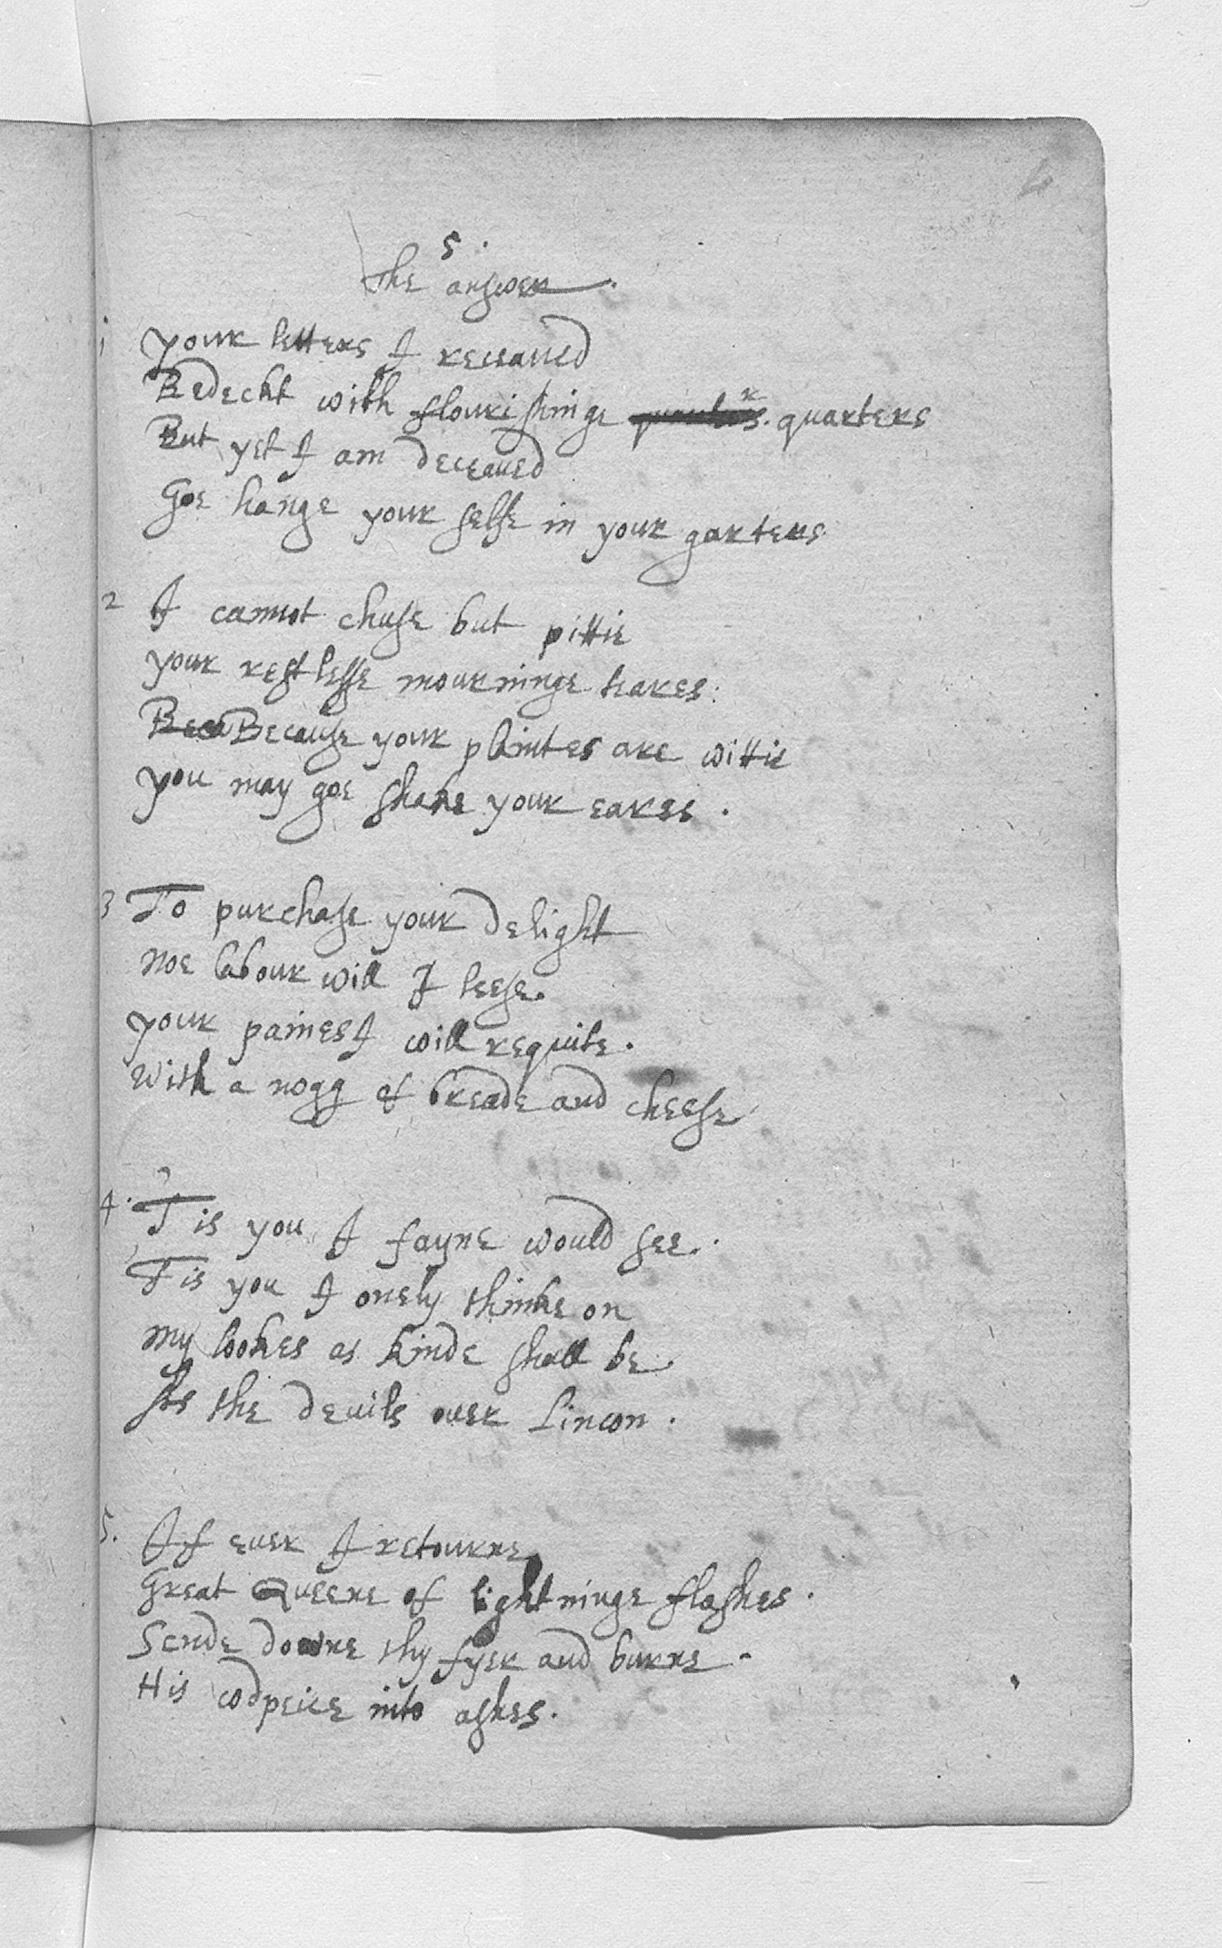 5.
The answer.
1 your letters I receaued
Bedeckt with flourishinge quarters. quarters
But yet I am deceaued
Goe hange your selfe in your garters
2 I cannot chuse but pittie
your restlesse mourninge teares.
Beca Because your plaintes are wittie
you may goe shake your eares.
3 To purchase your delight
noe labour will I leese.
your paines I will requite.
With a nogg of breade and cheese
4. T'is you I fayne would see.
T'is you I onely thinke on
my lookes as kinde shall be
As the deuils ouer Lincon.
5. If euer I retourne
Great Queene of lightninge flashes.
Sende downe thy fyer and burne.
His codpeice into ashes.